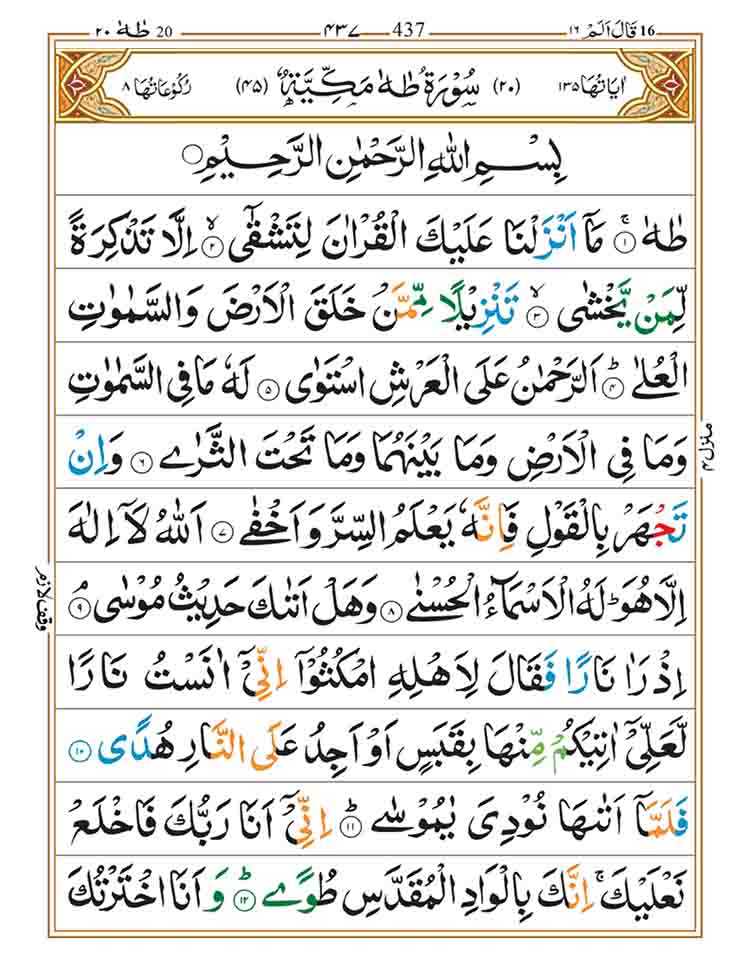 16 قَالَ اَلَمْ ١٦ 437 ٤٣٧ 20 طٰهٰ ٢٠
اٰيَاتُهَا ١٣٥ (٢٠) سُوْرَةُ طٰهٰ مَكِّيَّةٌ (٤٥) رُكُوْعَاتُهَا ٨
بِسْمِ اللّٰهِ الرَّحْمٰنِ الرَّحِيْمِ ○
طٰهٰ ۚ ١ مَاۤ اَنْزَلْنَا عَلَيْكَ الْقُرْاٰنَ لِتَشْقٰۤى ۙ ٢ اِلَّا تَذْكِرَةً
لِّمَنْ يَّخْشٰى ۙ ٣ تَنْزِيْلًا مِّمَّنْ خَلَقَ الْاَرْضَ وَالسَّمٰوٰتِ
الْعُلٰى ؕ ٤ اَلرَّحْمٰنُ عَلَى الْعَرْشِ اسْتَوٰى ٥ لَهٗ مَا فِى السَّمٰوٰتِ
وَمَا فِى الْاَرْضِ وَمَا بَيْنَهُمَا وَمَا تَحْتَ الثَّرٰى ٦ وَاِنْ
تَجْهَرْ بِالْقَوْلِ فَاِنَّهٗ يَعْلَمُ السِّرَّ وَاَخْفٰى ٧ اَللّٰهُ لَاۤ اِلٰهَ
اِلَّا هُوَ ؕ لَهُ الْاَسْمَآءُ الْحُسْنٰى ٨ وَهَلْ اَتٰىكَ حَدِيْثُ مُوْسٰى ۘ ٩
اِذْ رَاٰ نَارًا فَقَالَ لِاَهْلِهِ امْكُثُوْۤا اِنِّىْۤ اٰنَسْتُ نَارًا
لَّعَلِّىْۤ اٰتِيْكُمْ مِّنْهَا بِقَبَسٍ اَوْ اَجِدُ عَلَى النَّارِ هُدًى ١٠
فَلَمَّاۤ اَتٰىهَا نُوْدِىَ يٰمُوْسٰى ؕ ١١ اِنِّىْۤ اَنَا رَبُّكَ فَاخْلَعْ
نَعْلَيْكَ ۚ اِنَّكَ بِالْوَادِ الْمُقَدَّسِ طُوًى ؕ ١٢ وَ اَنَا اخْتَرْتُكَ
منزل ٤
وقف لازم